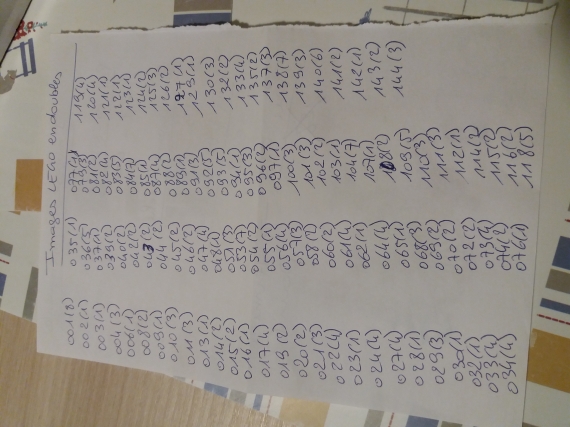 Images LEGO en doubles
001(8)
002(1)
003(1)
004(3)
006(1)
008(2)
009(1)
010(3)
011(3)
013(1)
014(2)
015(2)
016(1)
017(4)
019(2)
020(2)
021(3)
022(4)
023(1)
024(4)
027(4)
028(1)
029(3)
030(1)
032(1)
033(4)
034(4)
035(1)
036(5)
037(1)
039(2)
040(2)
042(2)
043(2)
044(2)
045(2)
046(2)
047(4)
048(1)
051(3)
053(7)
054(2)
055(1)
056(4)
057(3)
058(2)
060(2)
061(4)
062(1)
064(4)
065(1)
068(3)
069(2)
070(2)
072(2)
073(4)
074(2)
076(1)
077(4)
079(3)
081(2)
082(4)
083(5)
084(7)
085(1)
087(4)
088(2)
089(1)
091(3)
092(5)
093(5)
094(1)
095(3)
096(2)
097(1)
100(3)
101(3)
102(2)
103(1)
104(7)
107(1)
108(2)
109(5)
110(3)
111(3)
112(1)
114(2)
115(2)
116(2)
118(5)
119(4)
120(4)
121(1)
122(1)
123(1)
124(2)
125(3)
126(2)
127(1)
129(1)
130(3)
132(2)
133(4)
135(2)
137(3)
138(7)
139(3)
140(6)
141(2)
142(1)
143(2)
144(3)